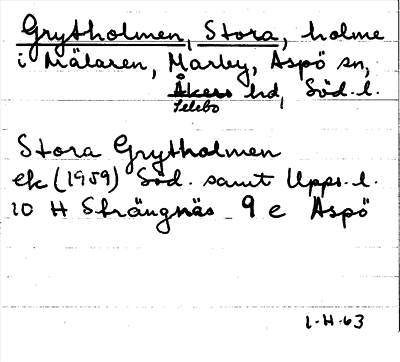 Grytholmen, Stora, holme
i Mälaren, Marby, Aspö sn,
Åkers hd, Söd. l.
Selebo
Stora Grytholmen
ek (1959) Söd. samt Upps. l.
10 H Strängnäs 9 e Aspö
L-H-63